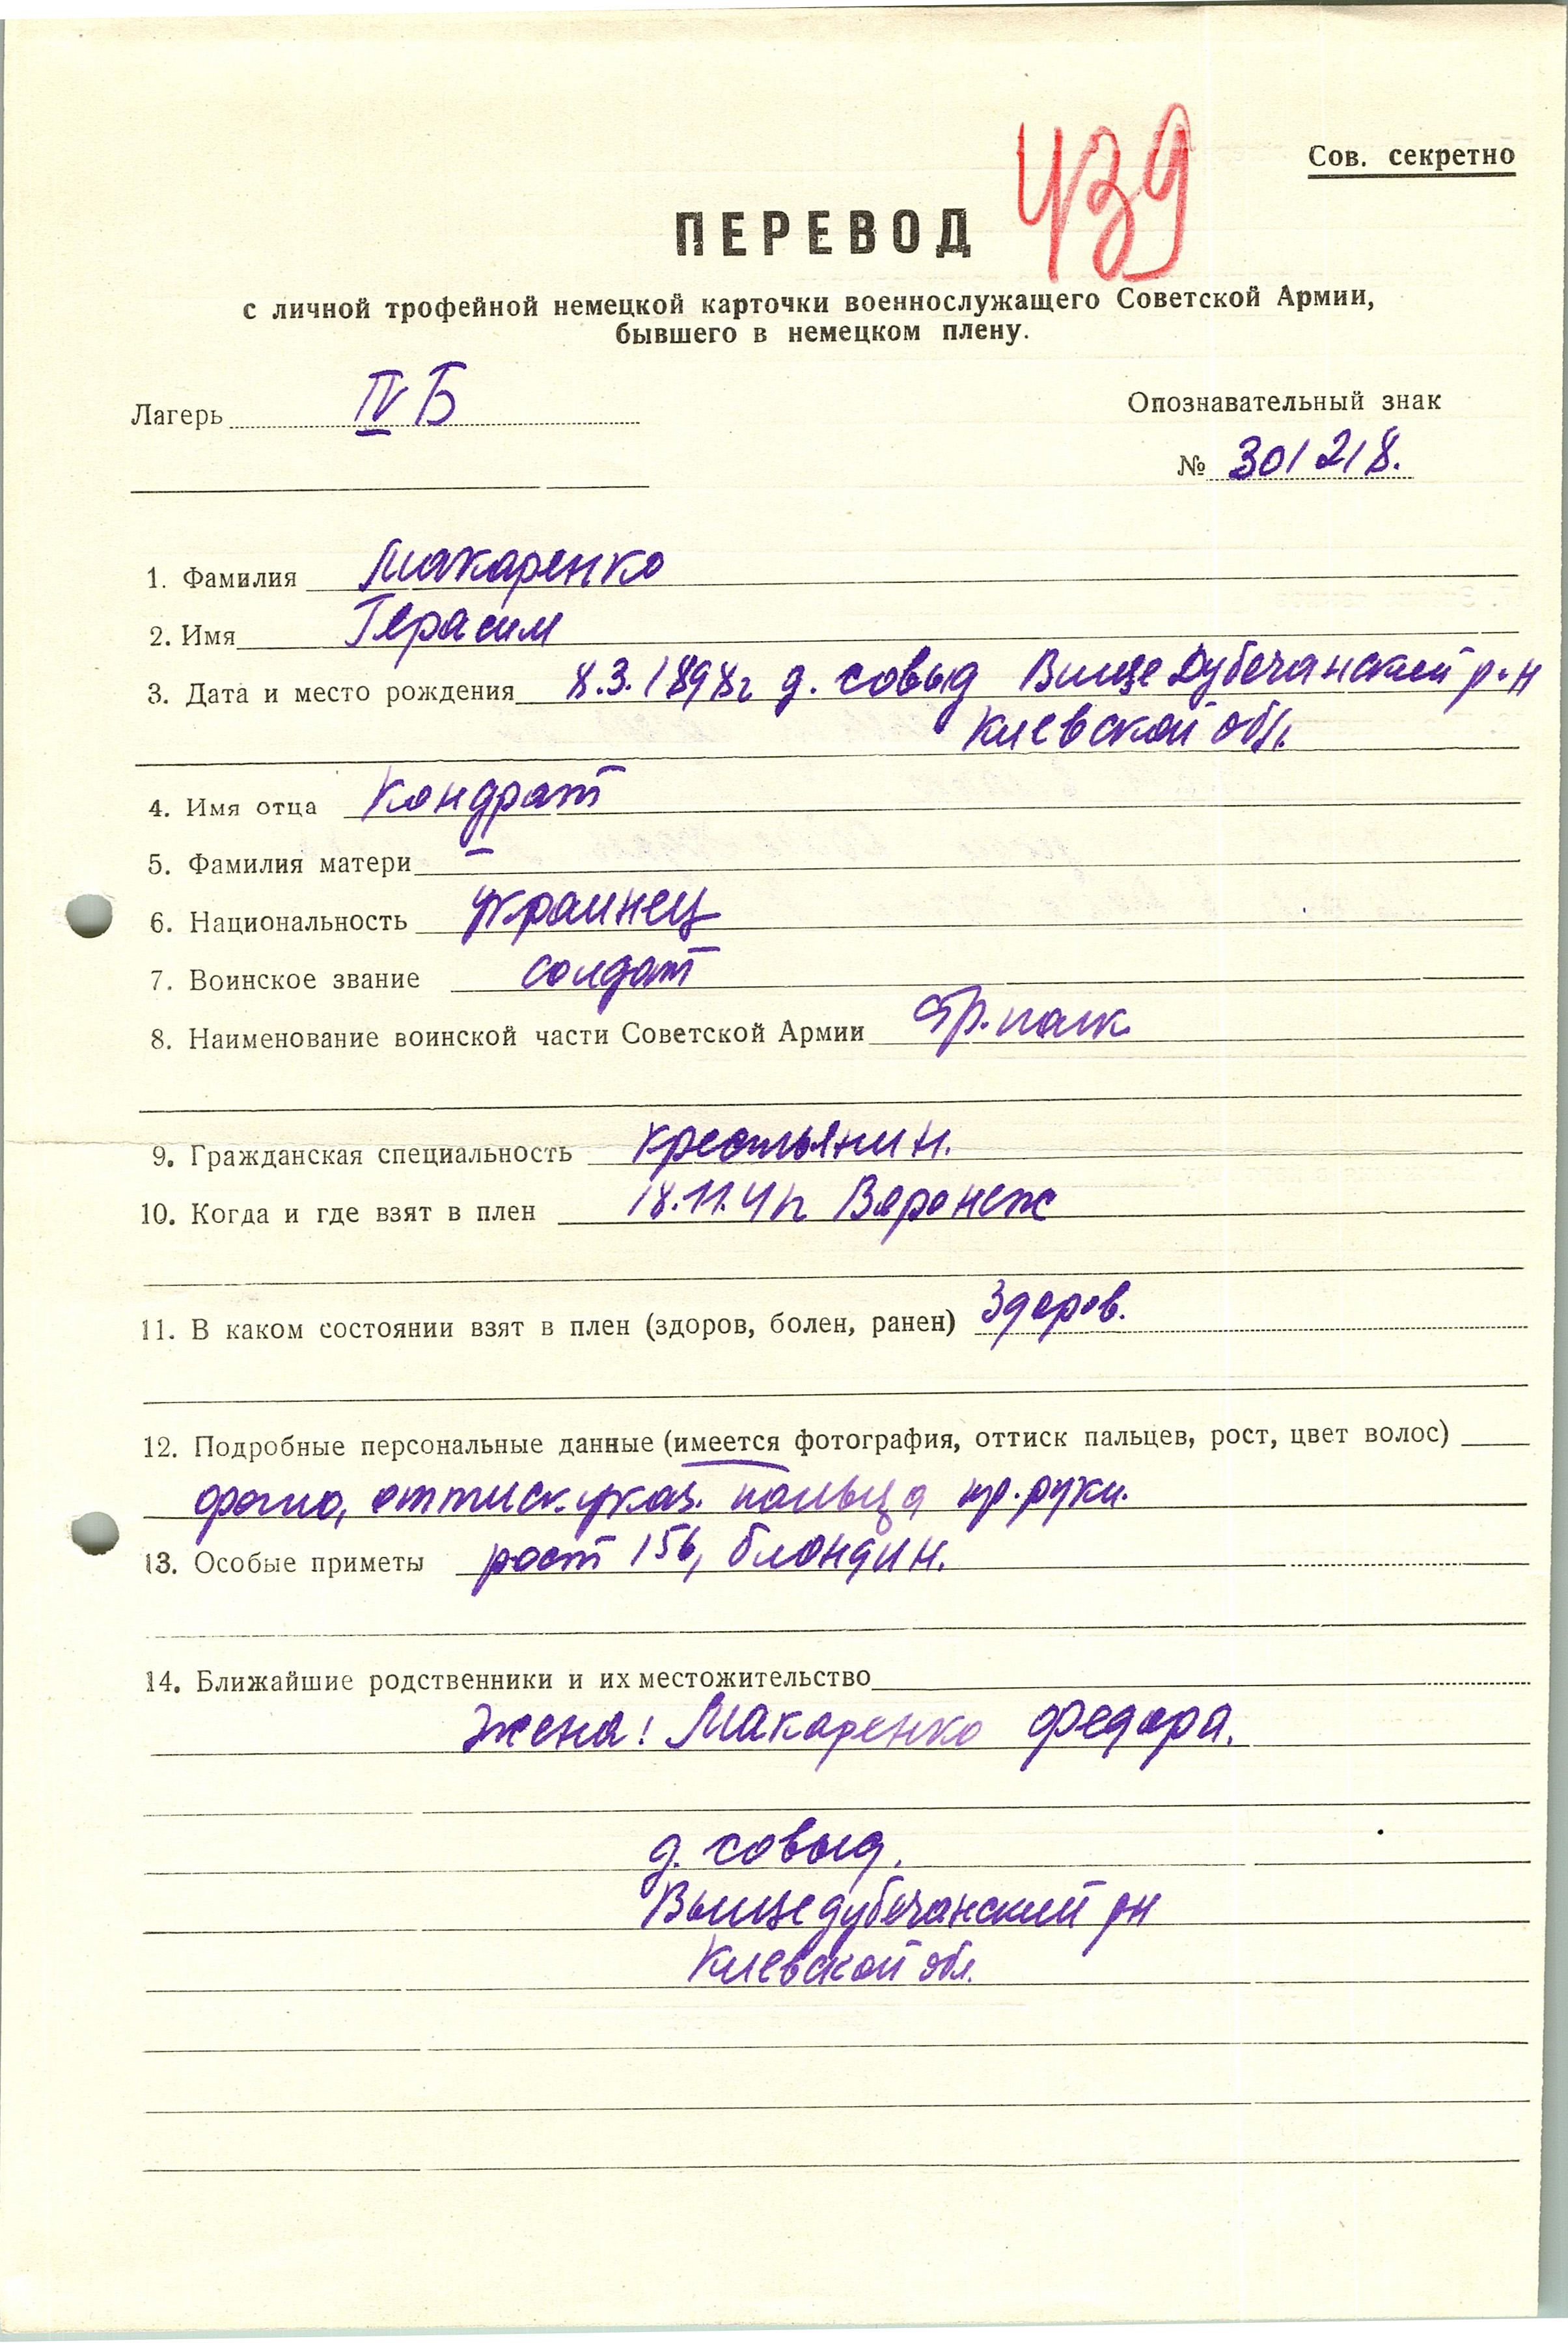 439
Сов. секретно
ПЕРЕВОД
с личной трофейной немецкой карточки военнослужащего Советской Армии,
бывшего в немецком плену.
Лагерь IV Б
Опознавательный знак
№ 301218.
1. Фамилия Макаренко
2. Имя Герасим
3. Дата и место рождения 8.3.1898г д. совыд ВищеДубечанский р-н
Киевской обл.
4. Имя отца Кондрат
5. Фамилия матери —
6. Национальность украинец
7. Воинское звание солдат
8. Наименование воинской части Советской Армии Стр. полк
9. Гражданская специальность крестьянин.
10. Когда и где взят в плен 18.11.41г Воронеж
11. В каком состоянии взят в плен (здоров, болен, ранен) Здоров.
12. Подробные персональные данные (имеется фотография, оттиск пальцев, рост, цвет волос)
фото, оттиск. указ. пальца пр. руки.
13. Особые приметы рост 156, блондин.
14. Ближайшие родственники и их местожительство
Жена: Макаренко Федора.
д. совыд.
Вышедубечанский рн
Киевской обл.